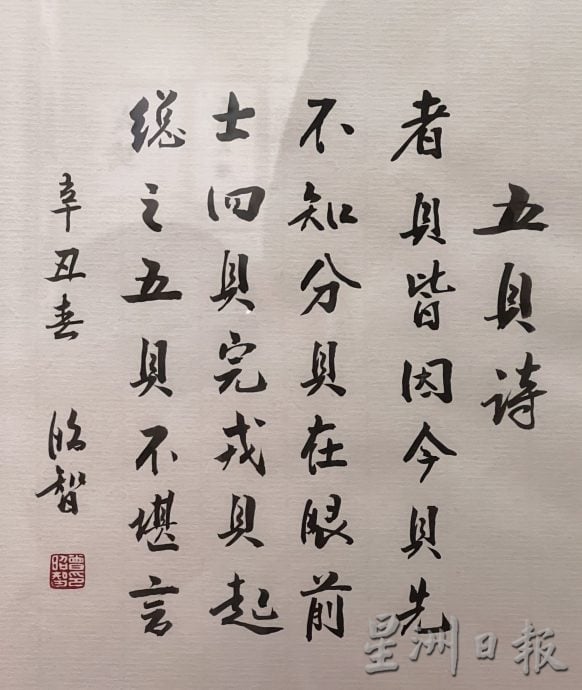 五貝诗
者貝皆因今貝先
不知分貝在眼前
士四貝完戎貝起
緫之五貝不堪言
辛丑春 昭智
星洲日報